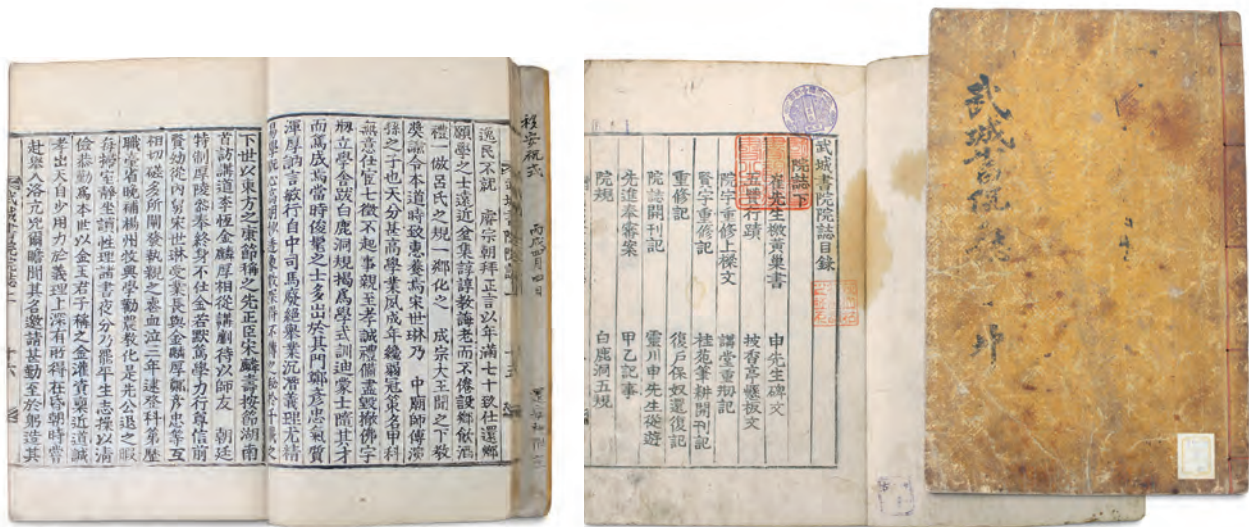 逸民不就 睿宗朝拜正言以年滿七十致仕還鄉
願學之士遠近坌集諄諄教誨老而不倦設鄉飮酒
禮一倣呂氏之規一鄉化之 成宗大王聞之下教
奬諭令本道時致惠養焉宋世琳乃 中廟師傅演
孫之子也天分甚高學業夙成年纔弱冠策名甲科
無意仕宦七徵不起事親至孝誠禮備盡毀撤佛宇
刱立學舍跋白鹿洞規揭爲學式訓迪蒙士隨其才
而篤成焉當時俊髦之士多出於其門鄭彦忠氣質
渾厚訥言敏行自中司馬廢絕擧業沉潛義理尤精
下世以東方之康節稱之先正臣宋麟壽按節湖南
首訪講道李恆金麟厚相從講劘待以師友 朝廷
特制厚陵叅奉終身不仕金若默篤學力行尊信前
賢幼從內舅宋世琳受業長與金麟厚鄭彦忠等互
相切磋多所開發執親之喪血泣三年逮登科第歷
職臺省晚補楊州牧興學勸農教化是先公退之暇
每掃室靜坐講性理諸書夜分乃罷平生志操以清
儉恭勤爲本世以金玉君子稱之金灌資稟近道誠
孝出天自少用力於義理上深有所得在昏朝時嘗
赴擧入洛亢宄爾瞻聞其名邀請甚勤至於躬造其
丙戌四月日
武城書院院誌目錄
院誌下
崔先生檄黃巢書 申先生碑文
五賢行蹟 披香亭懸板文
院宇重修上樑文 講堂重刱記
賢宇重修記 桂苑筆耕開刊記
重修記 復戶保奴還復記
院誌開刊記 靈川申先生從遊
先進奉審案 甲乙記事
院規 白鹿洞五規
武城書院誌